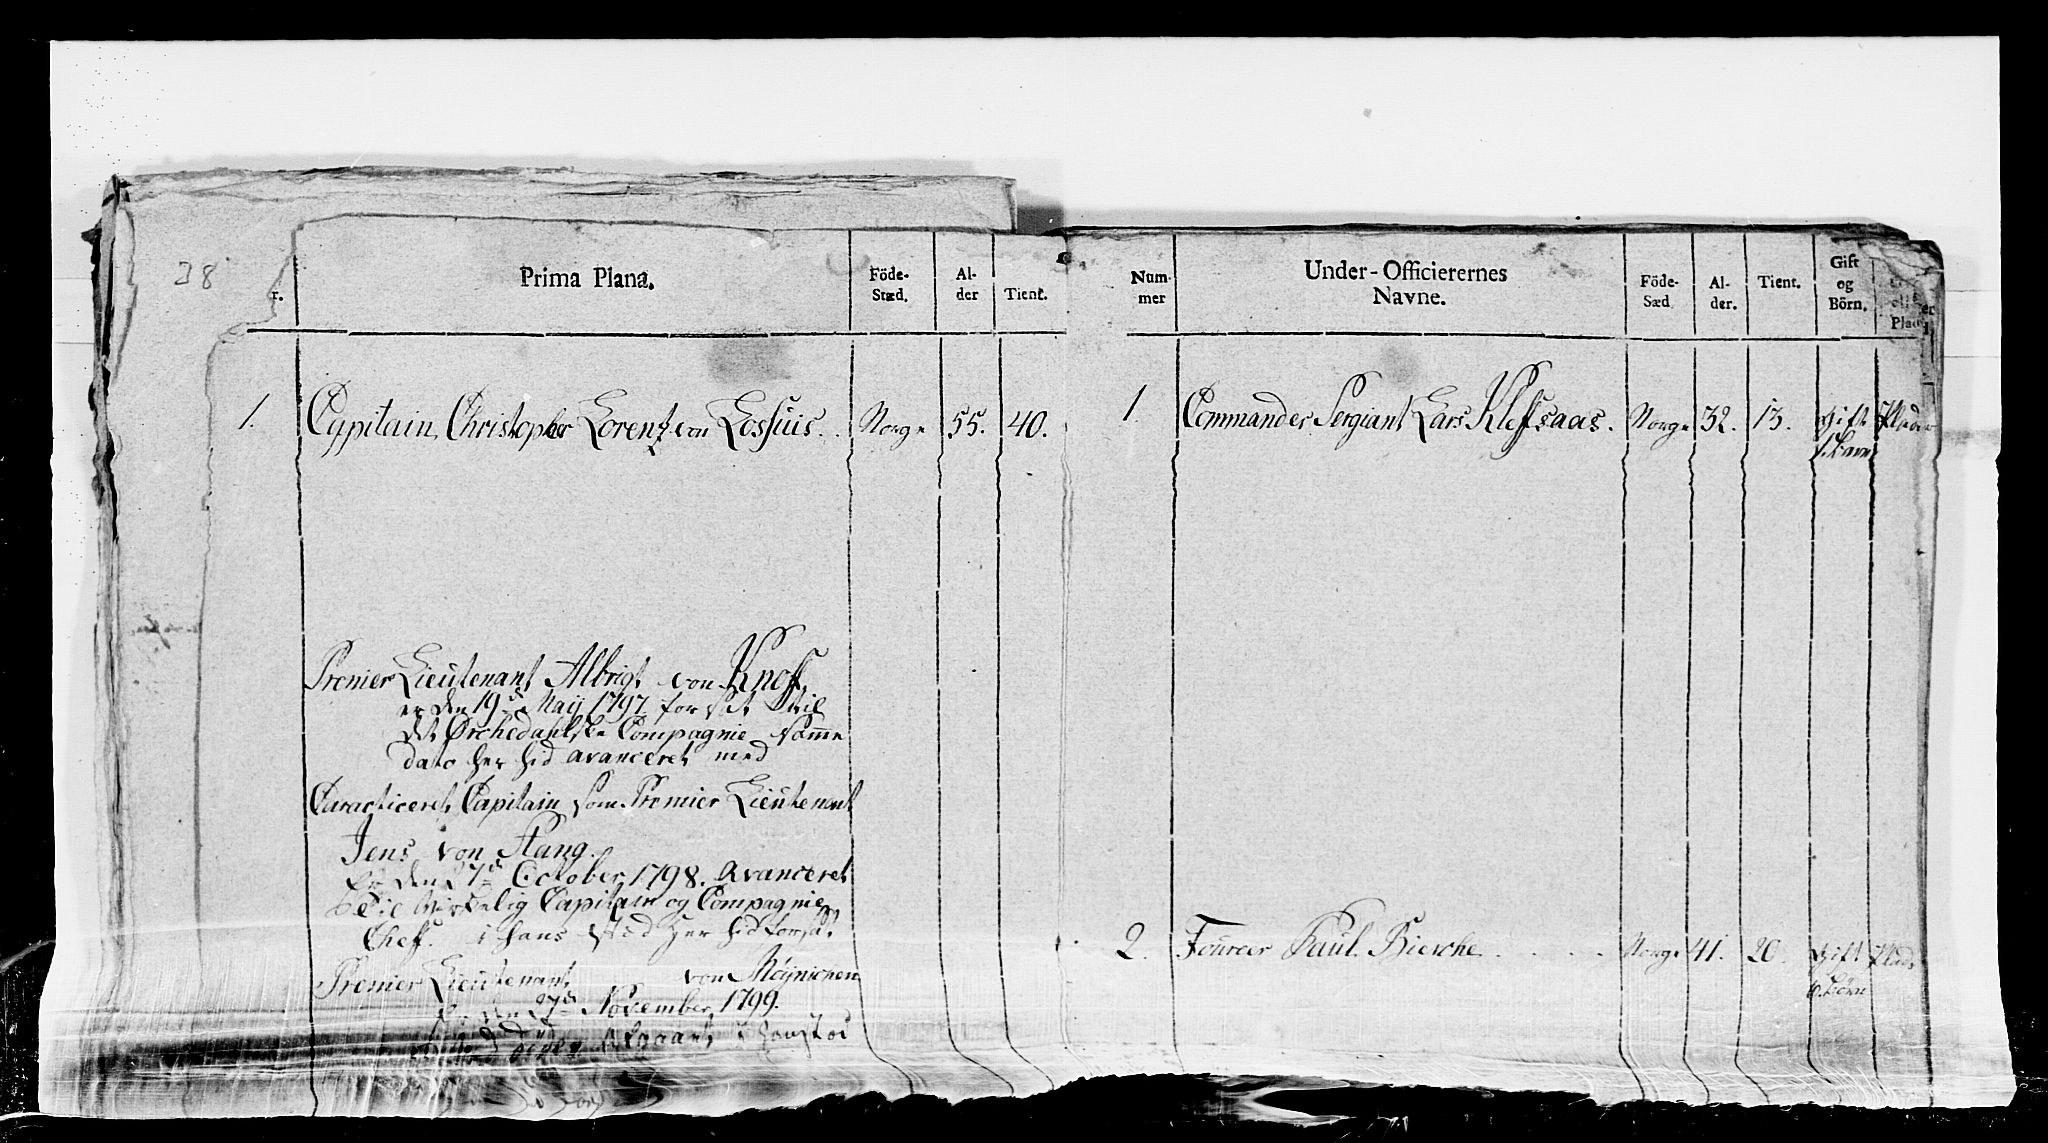 28
r.
Prima Plana.
Föde-
Stæd.
Al-
der
Tient.
1.
Capitain Christopher Lorentz von Lossuis.
Norge
55.
40.
Premier Lieutenant Albrigt von Knoff
er den 19de Maij 1797 forsat til
det Ørchedahlske Compagnie samme
dato her hid avanceret med
Caracticeret Capitain som Premier Lieutenant
Jens von Stang.
Er den 7de October 1798. avanceret
til Virkelig Capitain og Compagnie
Chef. i hans sted her hid forsat
Premier Lieutenant von Møinichen
November 1799.
Num-
mer
Under-Officierernes
Navne.
Föde-
Sæd
Al-
der.
Tient.
Gift
og
Börn.
1
Commander Sergiant Lars Kleffsaas.
Norge
32.
13.
Gift
1. Barn
2.
Foureer Paul Biersche
Norge
41.
20.
Gift
6. Børn